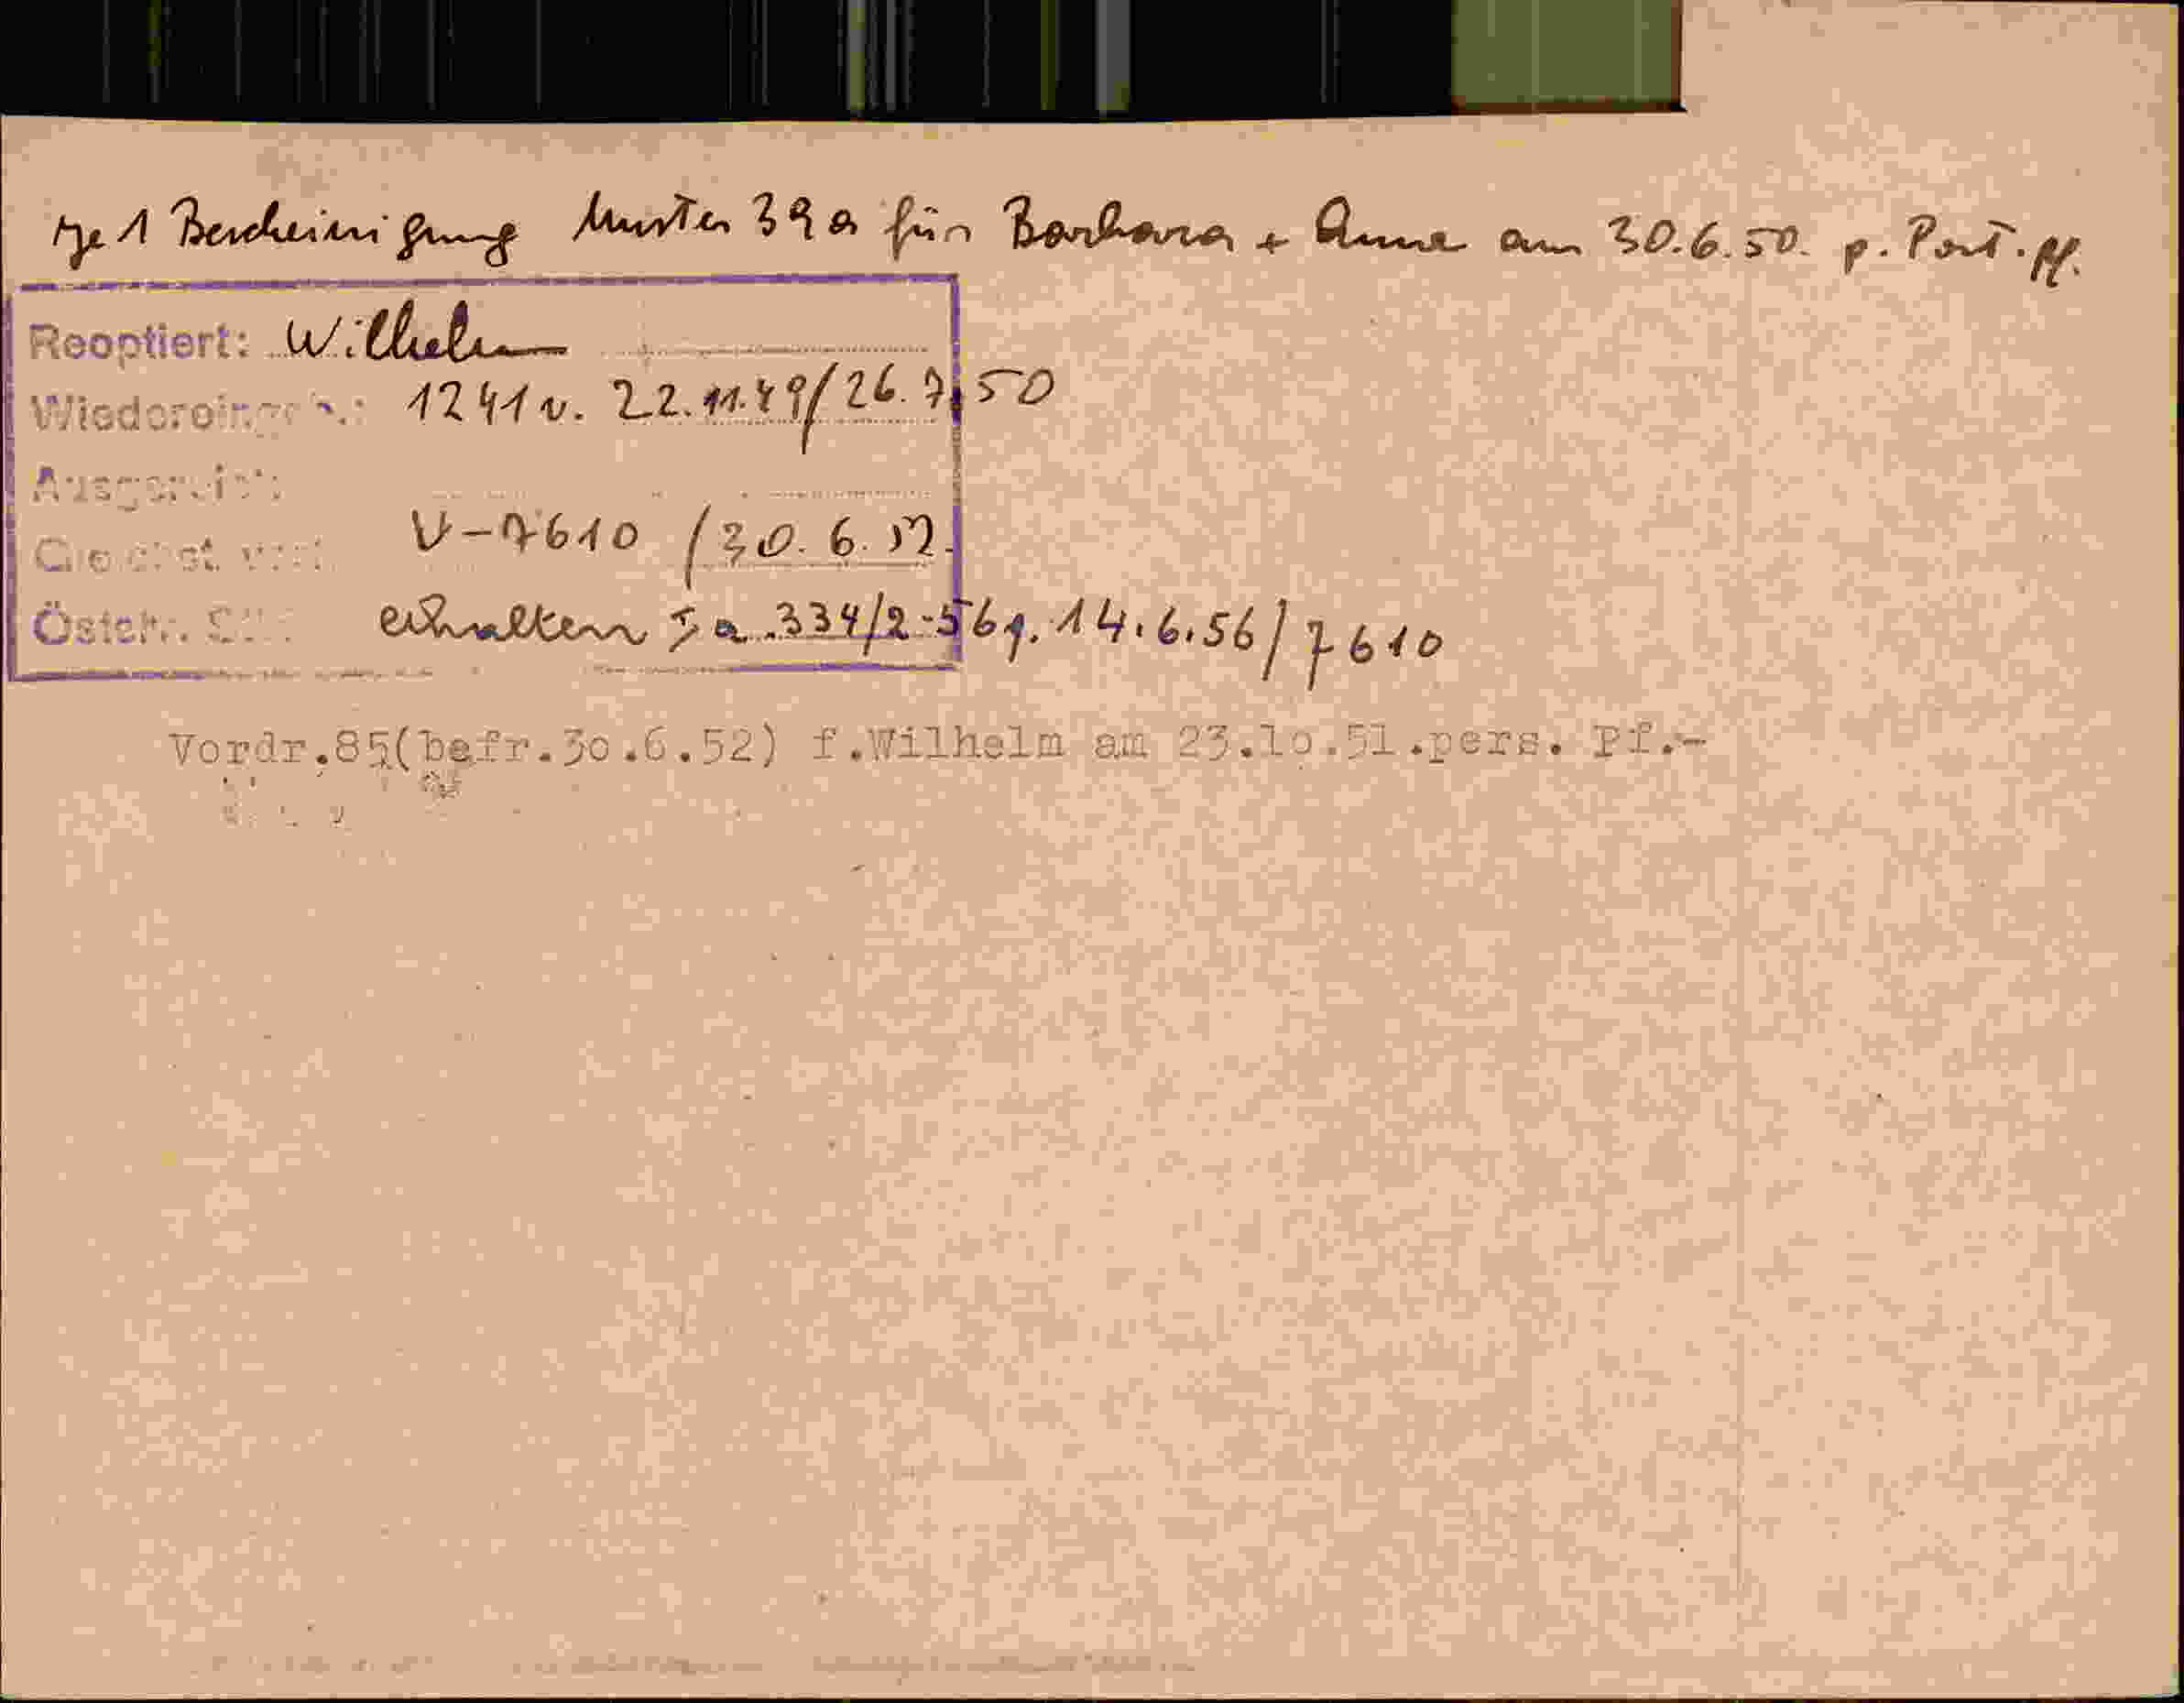 je 1 Bescheinigung Muster 39a für Barbara + Anna am 30.6.50. p. Post. Pf.
Reoptiert: Wilhelm
Wiedereingeb.: 1241 v. 22.11.49/26.7.50
Ausgereist:
V-7610 /30.6.52.
Österr. erhalten Ia 334/2-56 g. 14.6.56/7610
Vordr.85(befr.3o.6.52) f.Wilhelm am 23.1o.51.pers. Pf.-